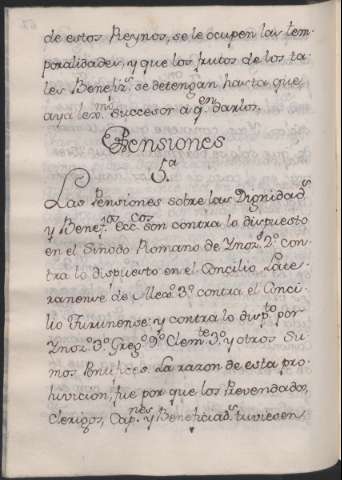 de estos Reynos, se le ocupen las tem-
poralidades, y que los frutos de los ta-
les Benefiz.s se detengan, hasta que,
aya lex.mo successor à q.en darlos.
Pensiones
5.a
Las Pensiones sobre las Dignidad.s
y Benef.ios Ecc.cos son contra lo dispuesto
en el Sinodo Romano de Ynoz.o 2.o con-
tra lo dispuesto en el Concilio Late-
ranense de Alex.o 3.o contra el Conci-
lio Turunense: y contra lo disp.to por
Ynoz.o 3.o Greg.o 9.o Clem.te 3.o y otros Su-
mos Pontifices. La razon de esta pro-
hivicion, fue por que los Prevendados,
Clerigos, Cap.nes y Beneficiad.s tuviesen